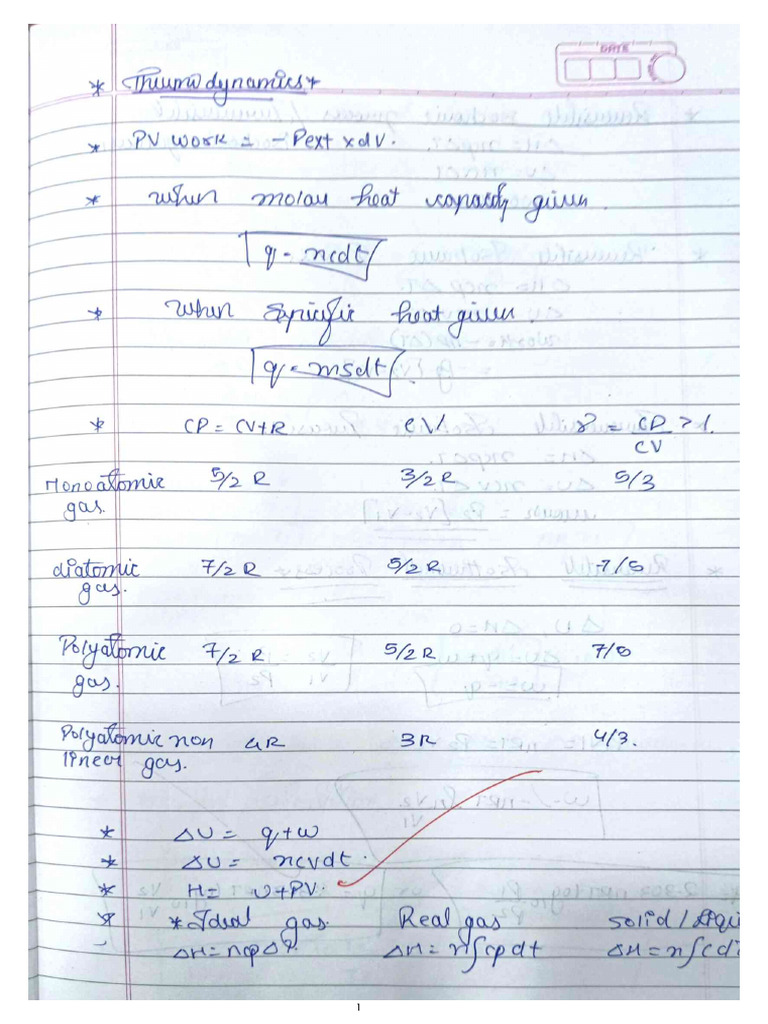 DATE
* Thermodynamics *
* PV work = - Pext x dv.
* When molar heat capacity given.
q = ncdt
* When Specific heat given.
q = msdt
* CP = CV+R CV γ = CP/CV > 1.
Monoatomic gas. 5/2 R 3/2 R 5/3
diatomic gas. 7/2 R 5/2 R 7/5
Polyatomic gas. 7/2 R 5/2 R 7/5
Polyatomic non linear gas. 4R 3R 4/3.
* ΔU = q+w
* ΔU = ncvdt.
* H = U+PV.
* * Ideal gas. Real gas solid / liqui
ΔH = ncpΔT. ΔH = n∫cpdt ΔH = n∫cd
1